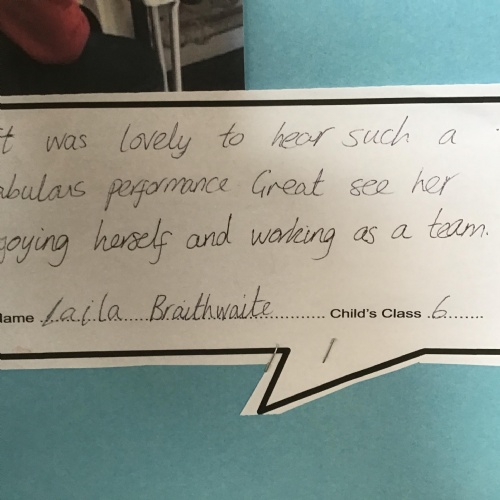 t was lovely to hear such a
abulous performance. Great see her
joying herself and working as a team.
lame Laila Braithwaite Child's Class 6